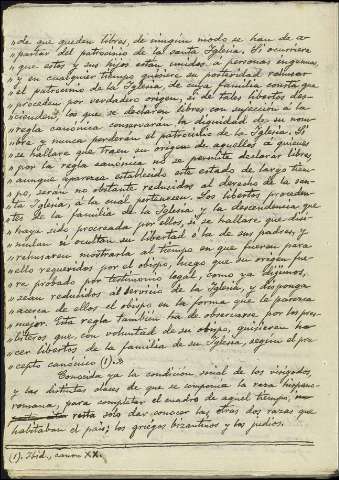 "de que queden libres, de ningún modo se han de a-
"partar del patrocinio de la santa Iglesia. Si ocurriere
"que estos y sus hijos están unidos á personas ingenuas,
"y en cualquier tiempo quisiere su posteridad rehusar
"el patrocinio de la Iglesia, de cuya familia consta que
"proceden por verdadero origen, si de tales libertos des-
"cienden, los que se declaren libres con sujeción á la
"regla canónica conservarán la dignidad de su nom-
"bre y nunca perderán el patrocinio de la Iglesia. Si
"se hallare que traen su origen de aquellos á quienes
"por la regla canónica no se permitía declarar libres,
"aunque aparezca establecido este estado de largo tiem-
"po, serán no obstante reducidos al derecho de la san-
"ta Iglesia, á la cual pertenecen. Los libertos proceden-
"tes de la familia de la Iglesia y la descendencia que
"haya sido procreada por ellos, si se hallare que disi-
"mulan ú ocultan su libertad ó la de sus padres, y
"rehusaren mostrarla al tiempo en que fueren para
"ello requeridos por el obispo, luego que su origen fue-
"re probado por testimonio legal, como ya dijimos,
"sean reducidos al servicio de la Iglesia, y disponga
"acerca de ellos el obispo en la forma que le parezca
"mejor. Esta regla también ha de observarse por los pres-
"bíteros que, con voluntad de su obispo, quisieren ha-
"cer libertos de la familia de su Iglesia, según el pre-
"cepto canónico (1)."
Conocida ya la condición social de los visigodos,
y las distintas clases de que se componía la raza hispano-
romana, para completar el cuadro de aquel tiempo,
resta sólo dar á conocer las otras dos razas que
habitaban el país; los griegos bizantinos y los judíos.
(1). Ibid., canon XX.